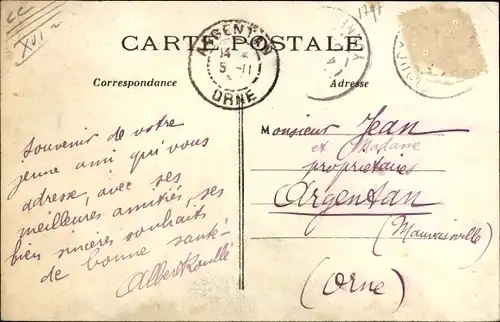 CC
XVI
1797
CARTE POSTALE
ARGENTAN
14
5 - 11
ORNE
Correspondance
Adresse
Souvenir de votre
jeune ami qui vous
adresse, avec ses
meilleures amitiés, ses
bien sincères souhaits
de bonne santé.
Albert
Monsieur Jean
et Madame
propriétaires
Argentan
(Mauvaisville)
(Orne)